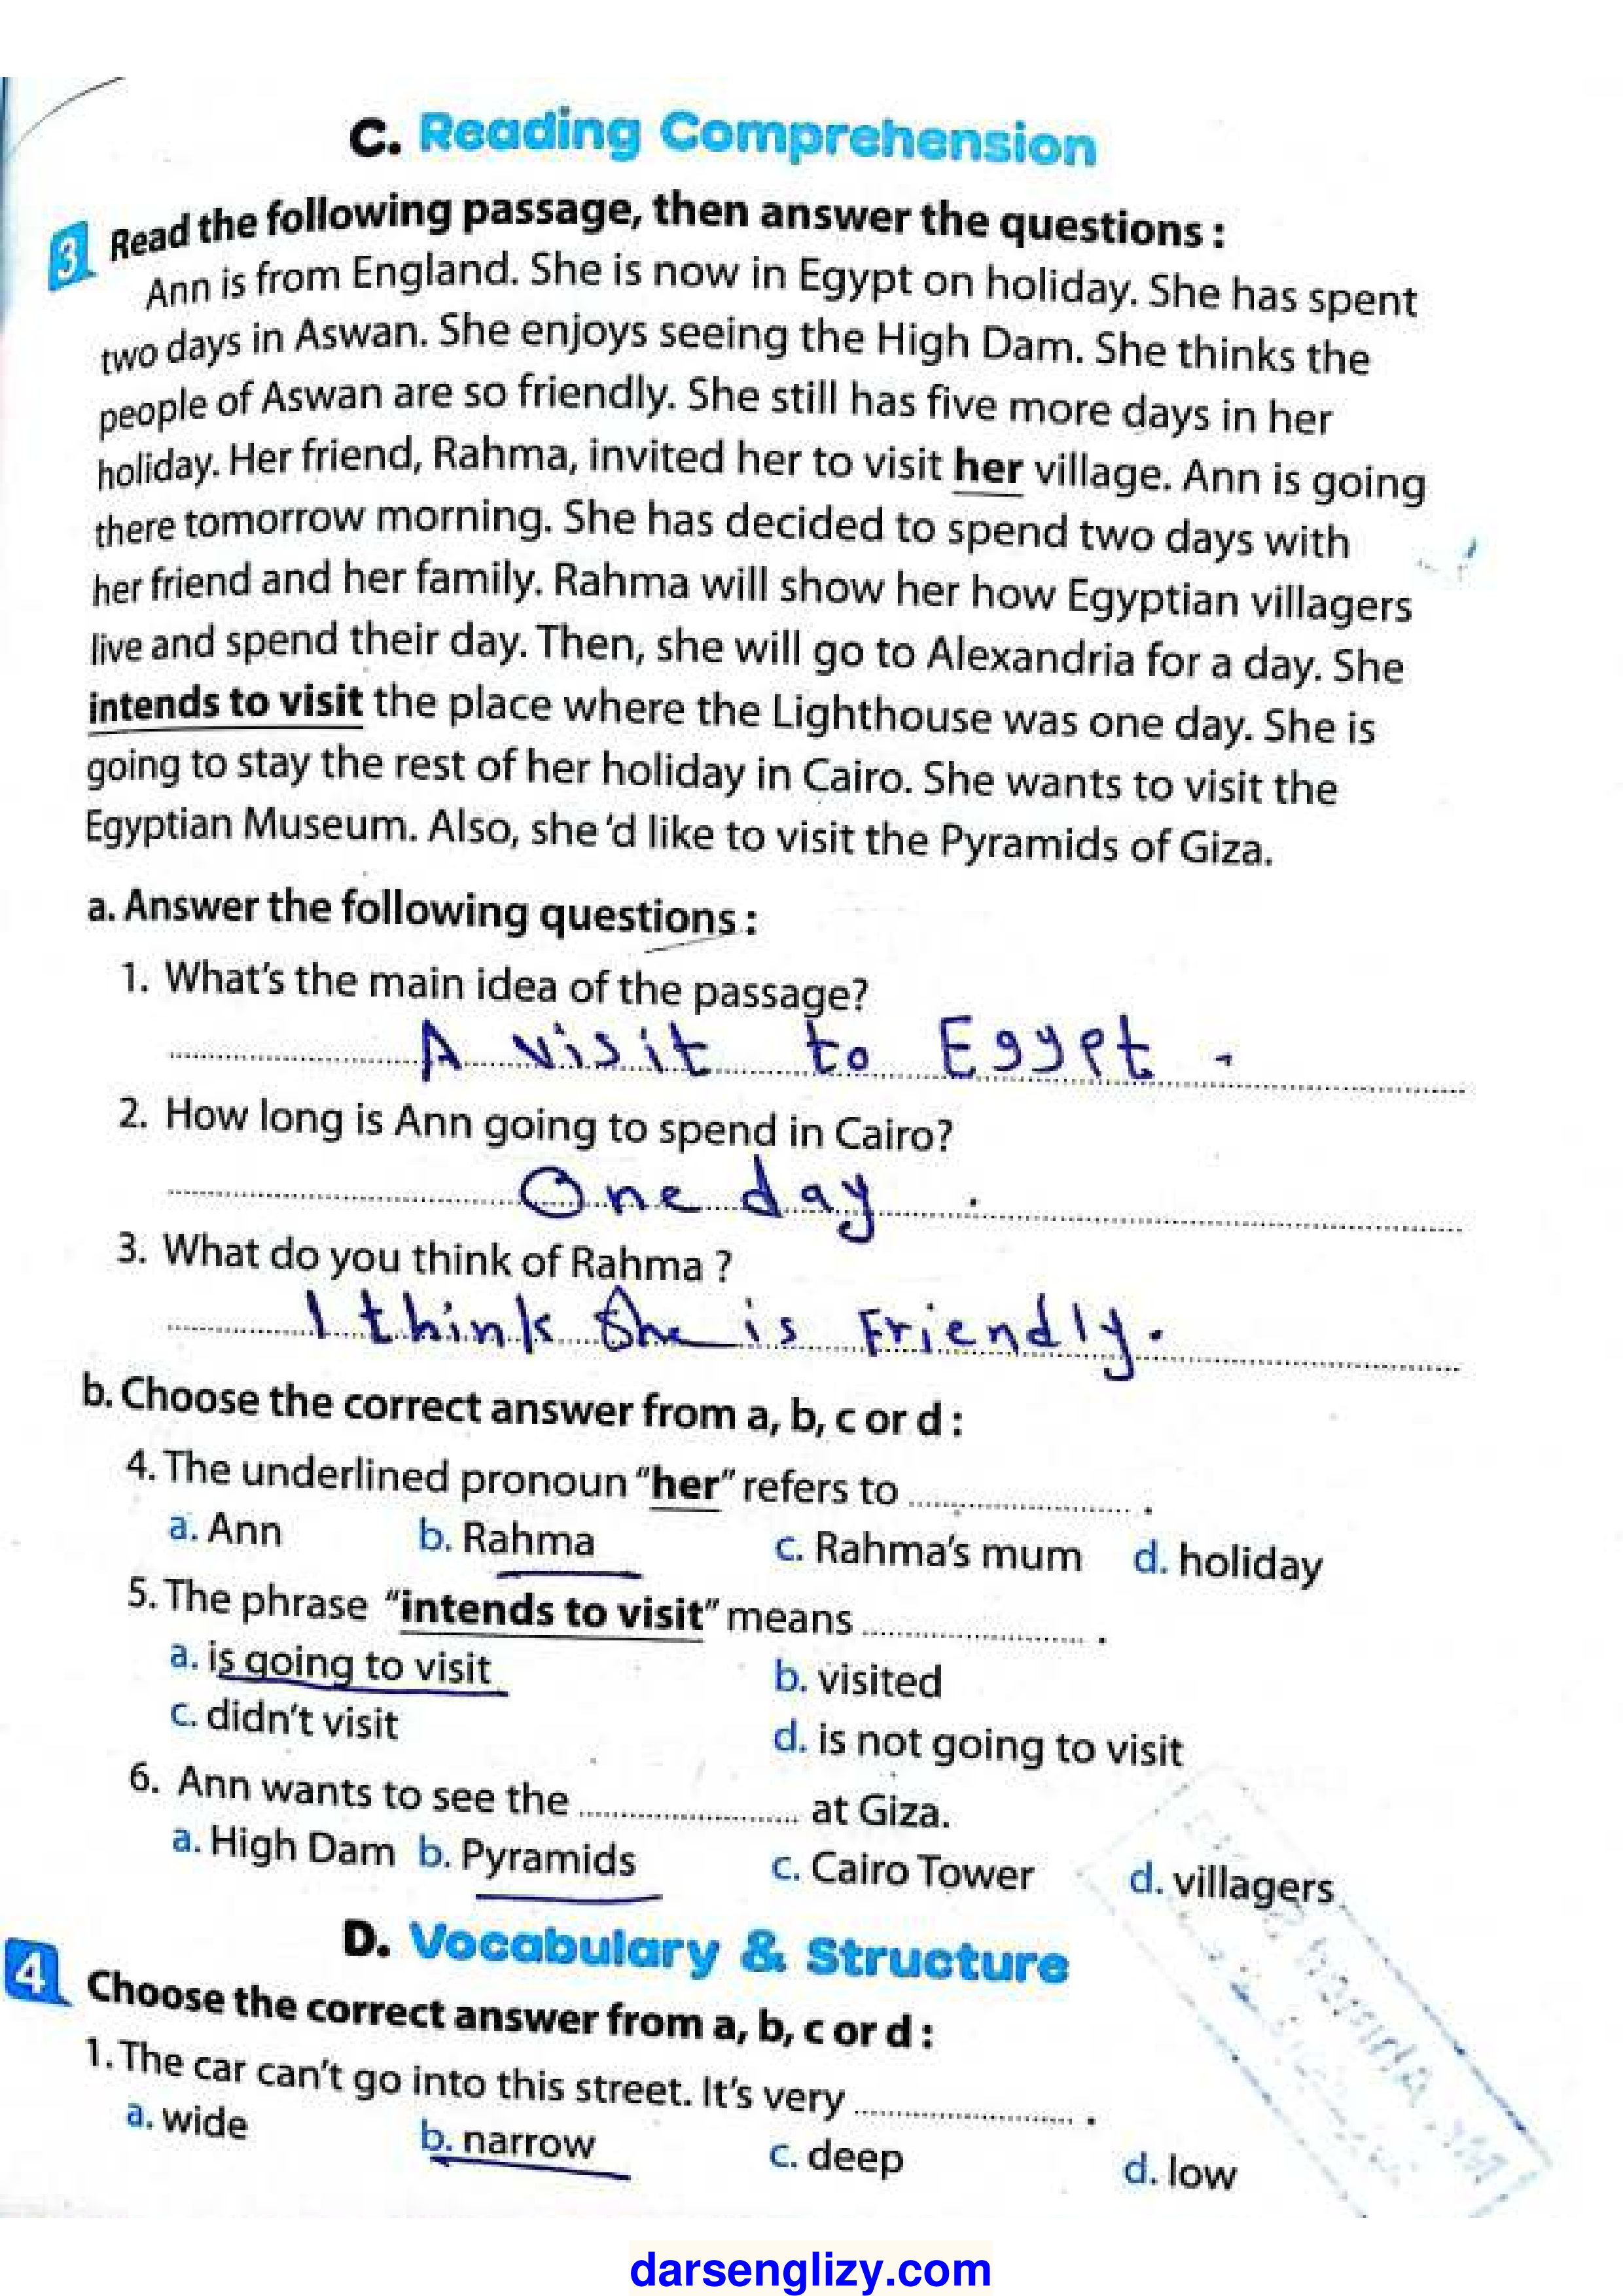 C. Reading Comprehension
3 Read the following passage, then answer the questions :
Ann is from England. She is now in Egypt on holiday. She has spent
two days in Aswan. She enjoys seeing the High Dam. She thinks the
people of Aswan are so friendly. She still has five more days in her
holiday. Her friend, Rahma, invited her to visit her village. Ann is going
there tomorrow morning. She has decided to spend two days with
her friend and her family. Rahma will show her how Egyptian villagers
live and spend their day. Then, she will go to Alexandria for a day. She
intends to visit the place where the Lighthouse was one day. She is
going to stay the rest of her holiday in Cairo. She wants to visit the
Egyptian Museum. Also, she 'd like to visit the Pyramids of Giza.
a. Answer the following questions :
1. What's the main idea of the passage?
A visit to Egypt.
2. How long is Ann going to spend in Cairo?
One day.
3. What do you think of Rahma ?
I think She is Friendly.
b. Choose the correct answer from a, b, c or d :
4. The underlined pronoun "her" refers to .................... .
a. Ann b. Rahma c. Rahma's mum d. holiday
5. The phrase "intends to visit" means .................... .
a. is going to visit b. visited
c. didn't visit d. is not going to visit
6. Ann wants to see the .................... at Giza.
a. High Dam b. Pyramids c. Cairo Tower d. villagers
D. Vocabulary & Structure
4 Choose the correct answer from a, b, c or d :
1. The car can't go into this street. It's very .................... .
a. wide b. narrow c. deep d. low
darsenglizy.com